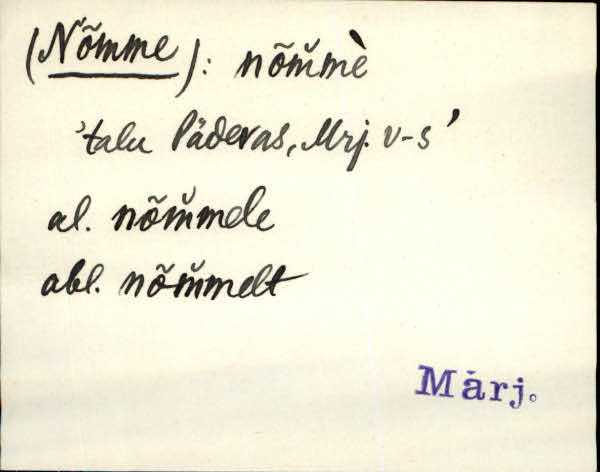 (Nõmme): nõm̆mè
'talu Päderas, Mrj. v-s'
al. nõm̆mele
abl. nõm̆melt
Märj.